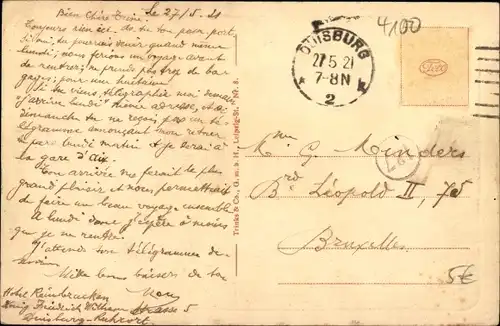 le 27/5.21
Bien Chère Irène,
Toujours rien ici, as-tu ton passeport,
Si oui, tu pourrais venir quand même
lundi, nous ferions un voyage avant
de rentrer, ne prends pas trop de ba-
gages, pour une huitaine
Si tu viens, télégraphie moi demain
"j'arrive lundi" même adresse, et si
dimanche tu ne reçois pas un té-
légramme annonçant mon retour
pars lundi matin et je serai à
la gare d'Aix.
Ton arrivée me ferait le plus
grand plaisir et nous permettrait
de faire un beau voyage ensemble
A lundi donc j'espère à moins
que je ne rentre.
J'attends ton télégramme de-
main
Mille bons baisers de ton
Hotel Rheinbrucken
König Friedrich Wilhelm Strasse 5
Duisburg-Ruhrort
Trinks & Co., G. m. b. H., Leipzig-St., Nr. 8.
DUISBURG
27.5.21
7-8N
* 2 *
4100
Mme G. Minders
Brd Léopold II, 75
Bruxelles
5€